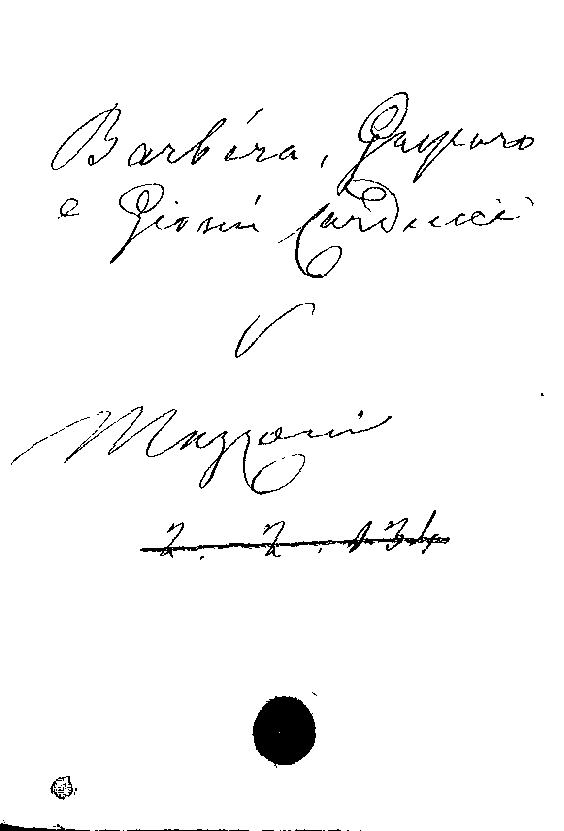 Barbéra, Gasparo
e Giosuè Carducci
V
Mazzoni
2. 2. 134